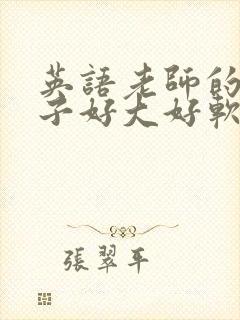 英語老師的
子好大好軟
張翠平